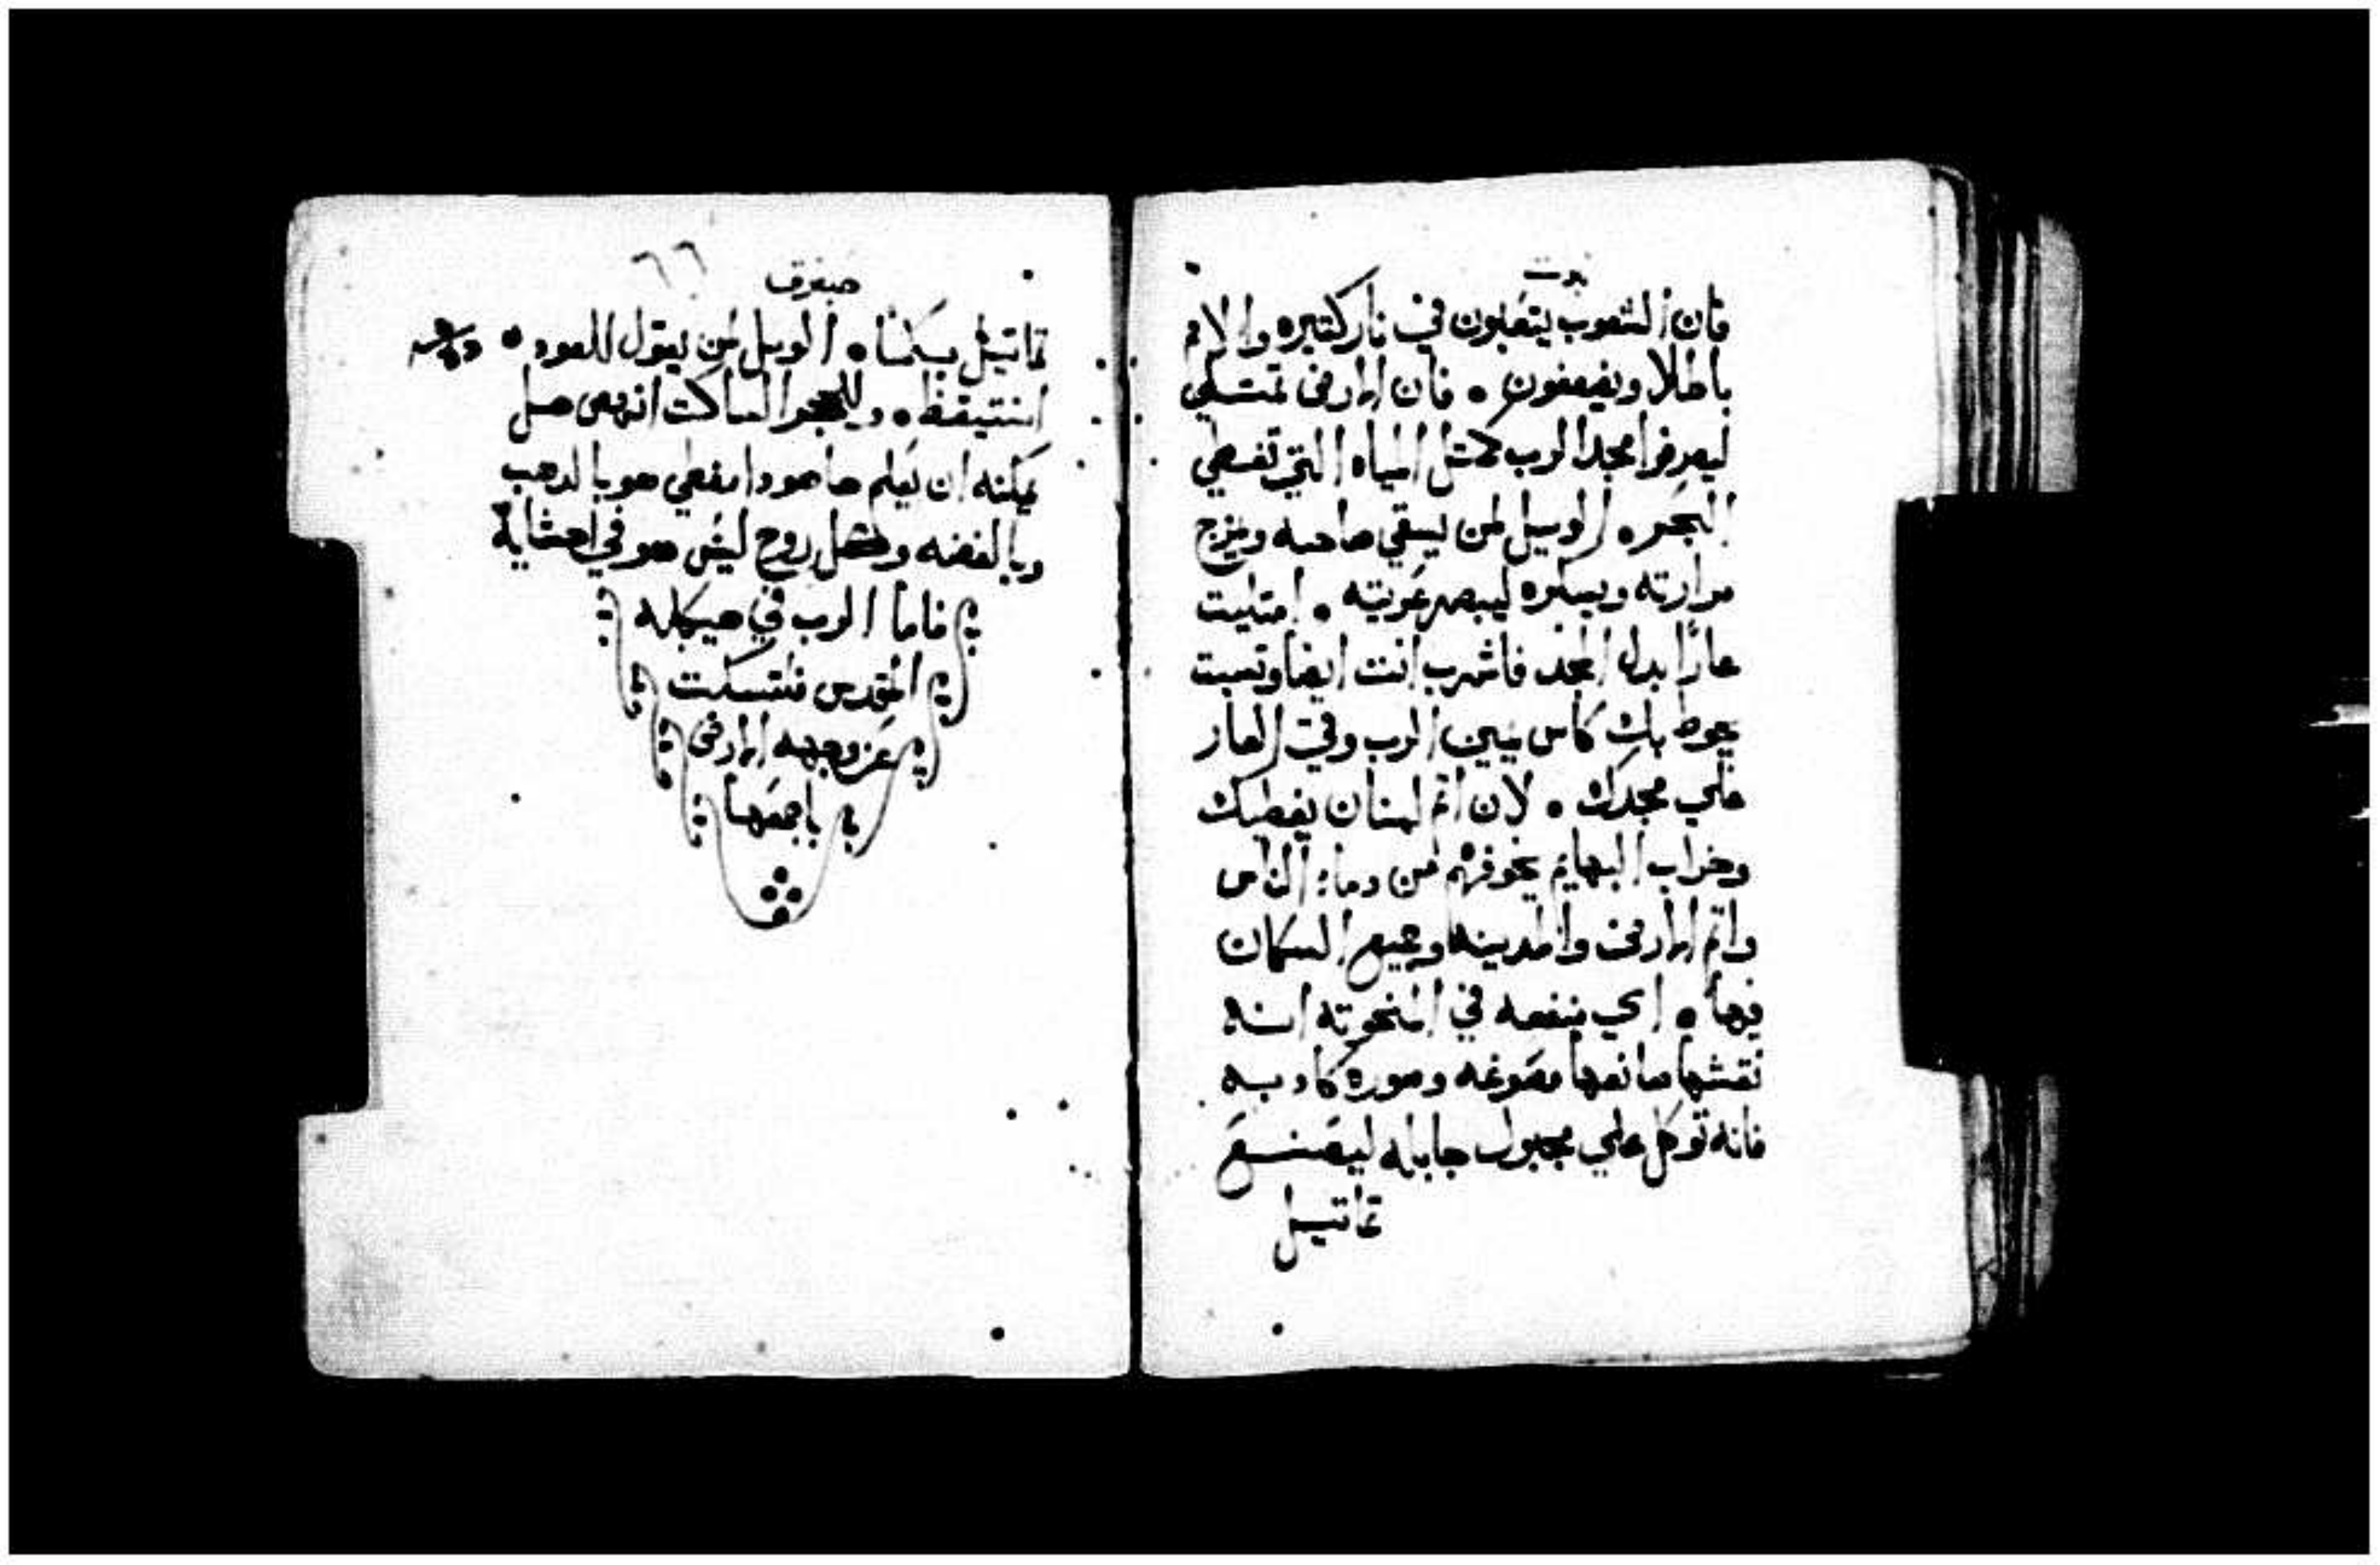 نبوت
فان الشعوب يتعبون في نار كتيره والامم
باطلا ويضعفون • فان الارض تمتلي
ليعرفوا مجد الرب كمتل المياه التي تغطي
البحر • الويل لمن يسقي صاحبه ويمزج
مرارته ويسكره ليبصر عريته • امتليت
عارًا بدل المجد فاشرب انت ايضا وتسبت
يحوط بك كاس يمين الرب وقي العار
علي مجدك • لان اثم لبنان يغطيك
وخراب البهايم يخوفهم من دماء الناس
واثم الارض والمدينه وجميع السكان
فيها • اي منفعه في المنحوته انه
نقشها صانعها مصوغه وصوره كادبه
فانه توكل علي مجبول جابله ليصنع
تماتيل
حبقوق ٦٦
تماتيل بكما • الويل لمن يقول للعود •
استيقظ • وللحجر الساكت انهض هل
يمكنه ان يعلم ها هودا مغطي هو بالدهب
وبالفضه وكل روح ليس هو في احشايه
فاما الرب في هيكله
المقدس فلتسكت
عن وجهه الارض
باجمعها